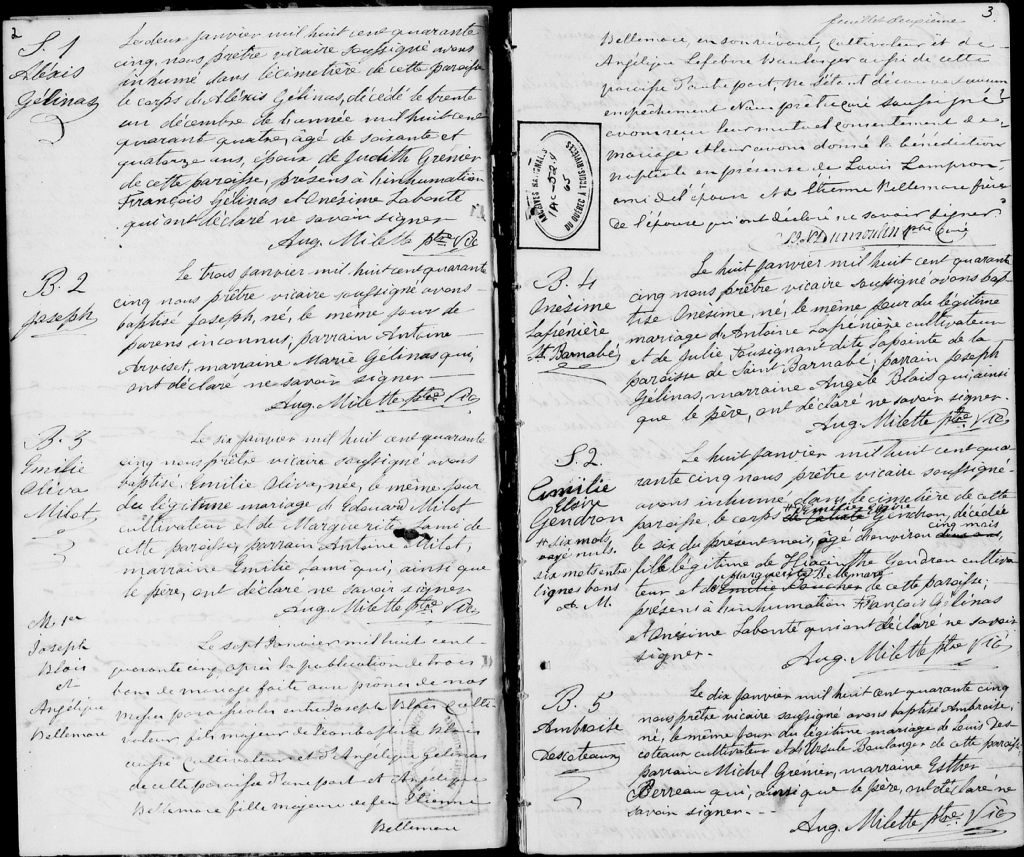 2
S. 1
Aléxis
Gélinas
Le deux janvier mil huit cent quarante
cinq, nous prêtre vicaire soussigné avons
inhumé dans le cimetière de cette paroisse
le corps d'Aléxis Gélinas, décédé le trente
un décembre de l'année mil huit cent
quarant quatre, âgé de soixante et
quatorze ans, époux de Judith Grénier
de cette paroisse, présens à l'inhumation
François Gélinas et Onésime Labonté
qui ont déclaré ne savoir signer
Aug. Milette ptre Vic
B. 2
Joseph
Le trois janvier mil huit cent quarante
cinq nous prêtre vicaire soussigné avons
baptisé Joseph, né, le même jour de
parens inconnus, parrain Antoine
Arviset, marraine Marie Gelinas qui,
ont déclaré ne savoir signer
Aug. Milette ptre Vic
B. 3
Emilie
Oliva
Milot
Le six janvier mil huit cent quarante
cinq nous prêtre vicaire soussigné avons
baptisé Emilie Oliva, née, le même jour
du légitime mariage d'Edouard Milot
cultivateur et de Marguerite Lami de
cette paroisse, parrain Antoine Milot,
marraine Emilie Lami qui, ainsi que
le père, ont déclaré ne savoir signer
Aug. Milette ptre Vic
M. 1er
Joseph
Blais
et
Angélique
Bellemare
Le sept Janvier mil huit cent
quarante cinq, après la publication de trois
bans de mariage faite aux prônes de nos
messes paroissiales entre Joseph Blais culti-
vateur fils majeur de Jean baptiste Blais
aussi Cultivateur et d'Angélique Gélinas
de cette paroisse d'une part et Angélique
Bellemare fille majeure de feu Etienne
Bellemare
feuillet deuxième
3.
Bellemare, en son vivant, cultivateur et de
Angélique Lefebvre Boulanger aussi de cette
paroisse d'autre part, ne s'étant découvert aucun
empêchement Nous prêtre Curé soussigné
avons reçu leur mutuel consentement de
mariage et leur avons donné la bénédiction
nuptiale en présence de Louis Lampron
ami de l'époux et de Etienne Bellemare frère
de l'épouse qui ont déclaré ne savoir signer
S. N. Dumoulin ptre Curé
ARCHIVES NATIONALES
DU QUÉBEC À TROIS-RIVIÈRES
65
B. 4
Onésime
Lafrénière
St. Barnabé
Le huit janvier mil huit cent quarante
cinq nous prêtre vicaire soussigné avons bap-
tisé Onésime, né, le même jour du légitime
mariage d'Antoine Lafrénière cultivateur
et de Julie Tousignant dite Lapointe de la
paroisse de Saint Barnabé; parrain Joseph
Gélinas, marraine Angèle Blais qui, ainsi
que le père, ont déclaré ne savoir signer.
Aug. Milette ptre Vic
S. 2.
Emilie
Eloïre
Gendron
# dix mots
rayé nuls.
six mots entre
lignes bons
A. M.
Le huit janvier mil huit cent qua-
rante cinq nous prêtre vicaire soussigné
avons inhumé dans le cimetière de cette
paroisse, le corps # d'Emilie Eloïre Gendron, décédée
le six du présent mois, agé d'environ cinq mois deux ans,
fille légitime de Hiacinthe Gendron cultiva-
teur et de Marguerite Bellemare Emilie Boucher de cette paroisse;
présens à l'inhumation François Gélinas
et Onésime Labonté qui ont déclaré ne savoir
signer.
Aug. Milette ptre Vic
B. 5
Ambroise
Descoteaux
Le dix janvier mil huit cent quarante cinq
nous prêtre vicaire soussigné avons baptisé Ambroise,
né, le même jour du légitime mariage de Louis Des-
coteaux cultivateur et d'Ursule Boulanger de cette paroisse
parrain Michel Grénier, marraine Esther
Berreau qui, ainsi que le père, ont déclaré ne
savoir signer.
Aug. Milette ptre. Vic